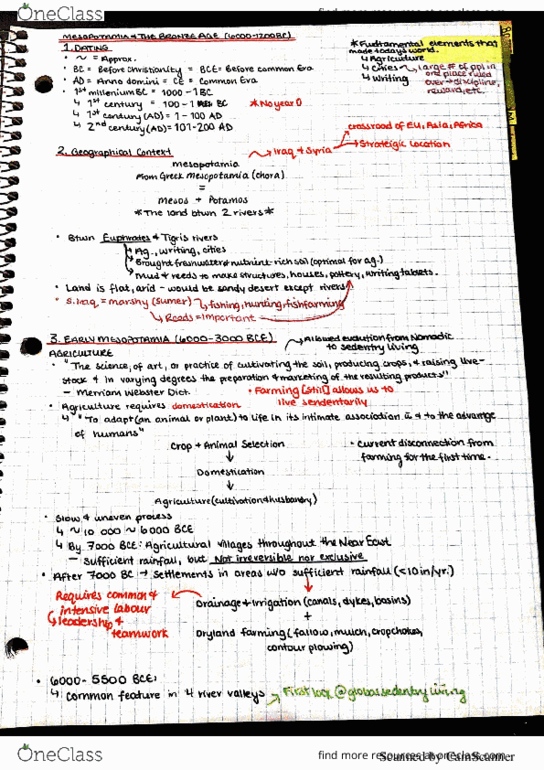 OneClass
find more resources at oneclass.com
MESOPOTAMIA & THE BRONZE AGE (6000-1200BC)
1. DATING
• ~ = Approx.
• BC = Before Christianity = BCE = Before common Era
• AD = Anno domini = CE = Common Era
• 1st millenium BC = 1000 - 1 BC
↳ 1st century = 100 - 1 BC *No year 0
↳ 1st century (AD) = 1 - 100 AD
↳ 2nd century (AD) = 101-200 AD
*Fudtamental elements that
made todays world.
↳ Agriculture
↳ Cities → large # of ppl in
one place ruled
over → discipline,
reward, etc.
↳ Writing
2. Geographical Context
→ Iraq & Syria
crossroad of EU, Asia, Africa
→ Strategic Location
mesopotamia
From Greek Mesopotamia (chora)
=
Mesos + Potamos
*The land btwn 2 rivers*
• Btwn Euphrates & Tigris rivers
Ag., writing, cities
Brought freshwater & nutrient-rich soil (optimal for ag.)
Mud & reeds to make structures, houses, pottery, writing tablets.
• Land is flat, arid - would be sandy desert except rivers
• S. Iraq = marshy (Sumer) ↳ fishing, hunting, fishfarming
↳ Reads = important
3. EARLY MESOPOTAMIA (6000-3000 BCE)
→ Allowed evolution from Nomadic
to sedentry living
AGRICULTURE
• "The science, of art, or practice of cultivating the soil, producing crops, & raising live-
stock & in varying degrees the preparation & marketing of the resulting products"
- Merriam Webster Dict.
• Farming [still] allows us to
live sendentarily
• Agriculture requires domestication
↳ "To adapt (an animal or plant) to life in its intimate association c̄ & to the advantage
of humans"
Crop + Animal Selection
↓
Domestication
↓
Agriculture (cultivation & husbandry)
• Current disconnection from
farming for the first time.
• Slow & uneven process
↳ ~ 10 000 ~ 6000 BCE
↳ By 7000 BCE: Agricultural villages throughout the Near East
- Sufficient rainfall, but Not irreversible nor exclusive
• After 7000 BC → Settlements in areas w/o sufficient rainfall (<10 in/yr.)
Requires common &
intensive labour
↳ leadership &
teamwork
Drainage & Irrigation (canals, dykes, basins)
+
Dryland farming (fallow, mulch, crop choices,
contour plowing)
• 6000 - 5500 BCE:
↳ Common feature in 4 river valleys → First look @ global sedentry living
OneClass
find more resources at oneclass.com
Scanned by CamScanner